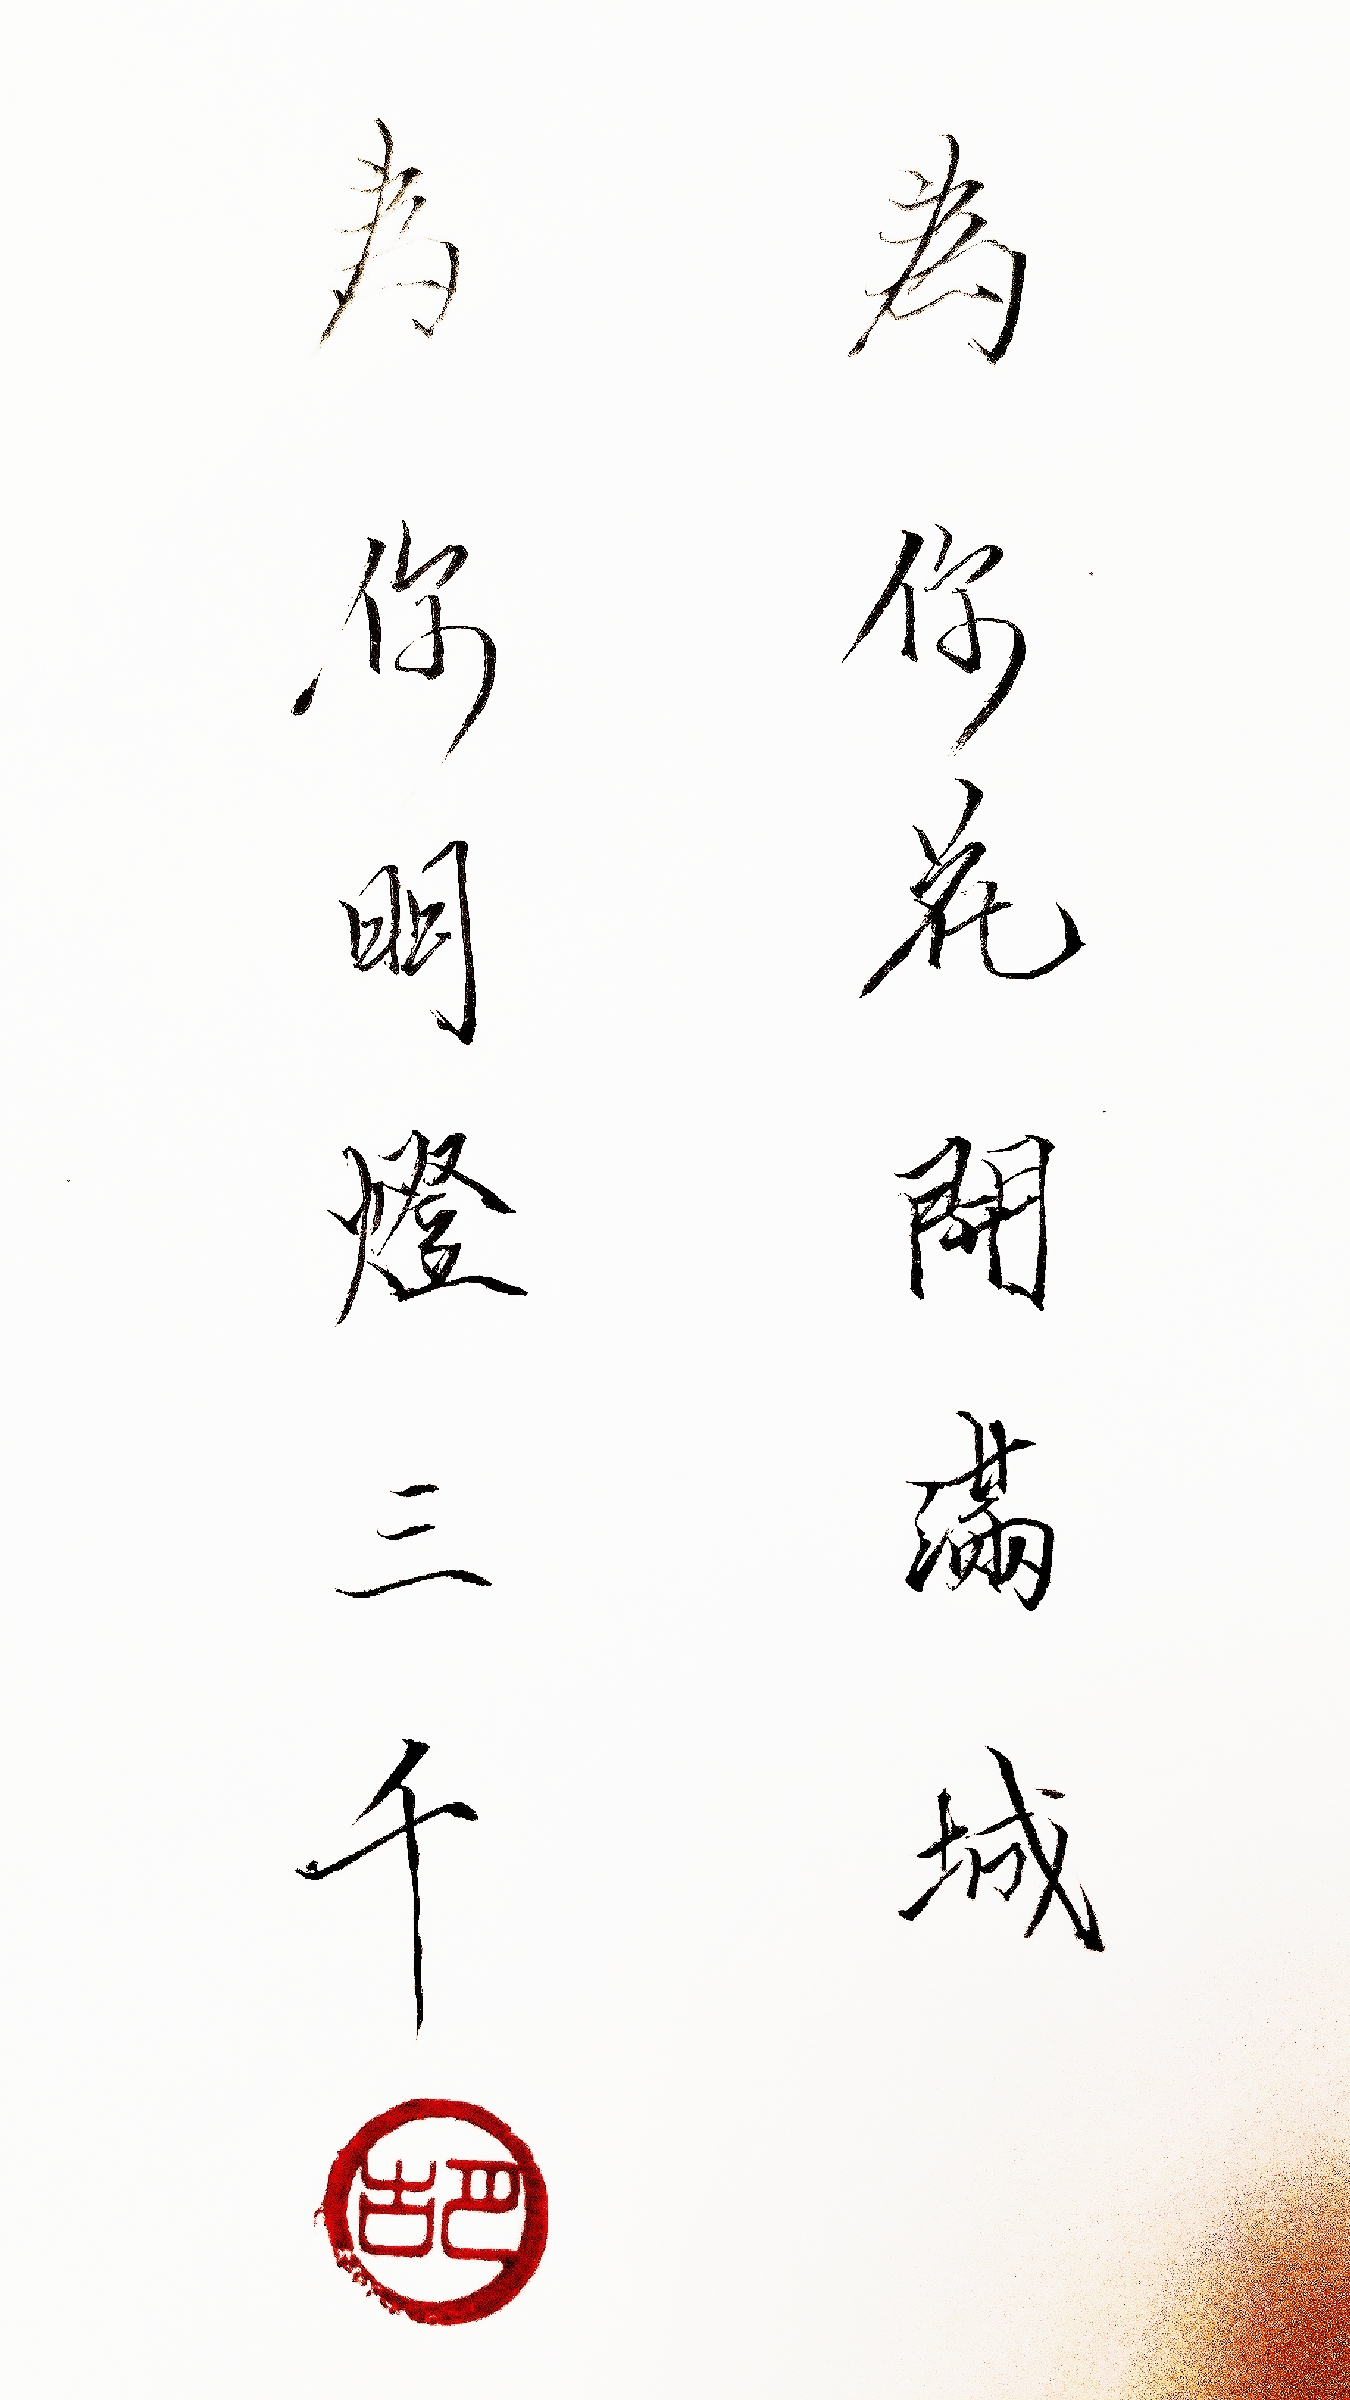 為你花開滿城
為你明燈三千